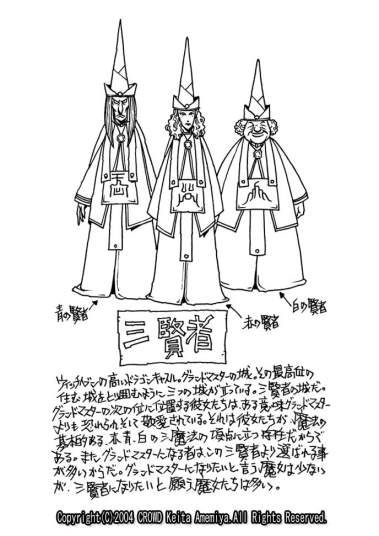 青の賢者
赤の賢者
白の賢者
三賢者
ウィッチヘブンの高いドラゴンキャスル。グランドマスターの城。その最高位の
住む城をとり囲むように三つの城が立っている。三賢者の城だ。
グランドマスターの次の位に位置する彼女たちは、ある意味グランドマスター
よりも恐れられそして敬愛されている。それは彼女たちが、魔法の
基本的である、赤、青、白の三魔法の頂点に立つ存在だからで
ある。またグランドマスターになる者は、この三賢者より選ばれる事
が多いからだ。グランドマスターになりたいと言う魔女は少ない
が、三賢者になりたいと願う魔女たちは多い。
Copyright(C)2004 CROWD Keita Amemiya.All Rights Reserved.